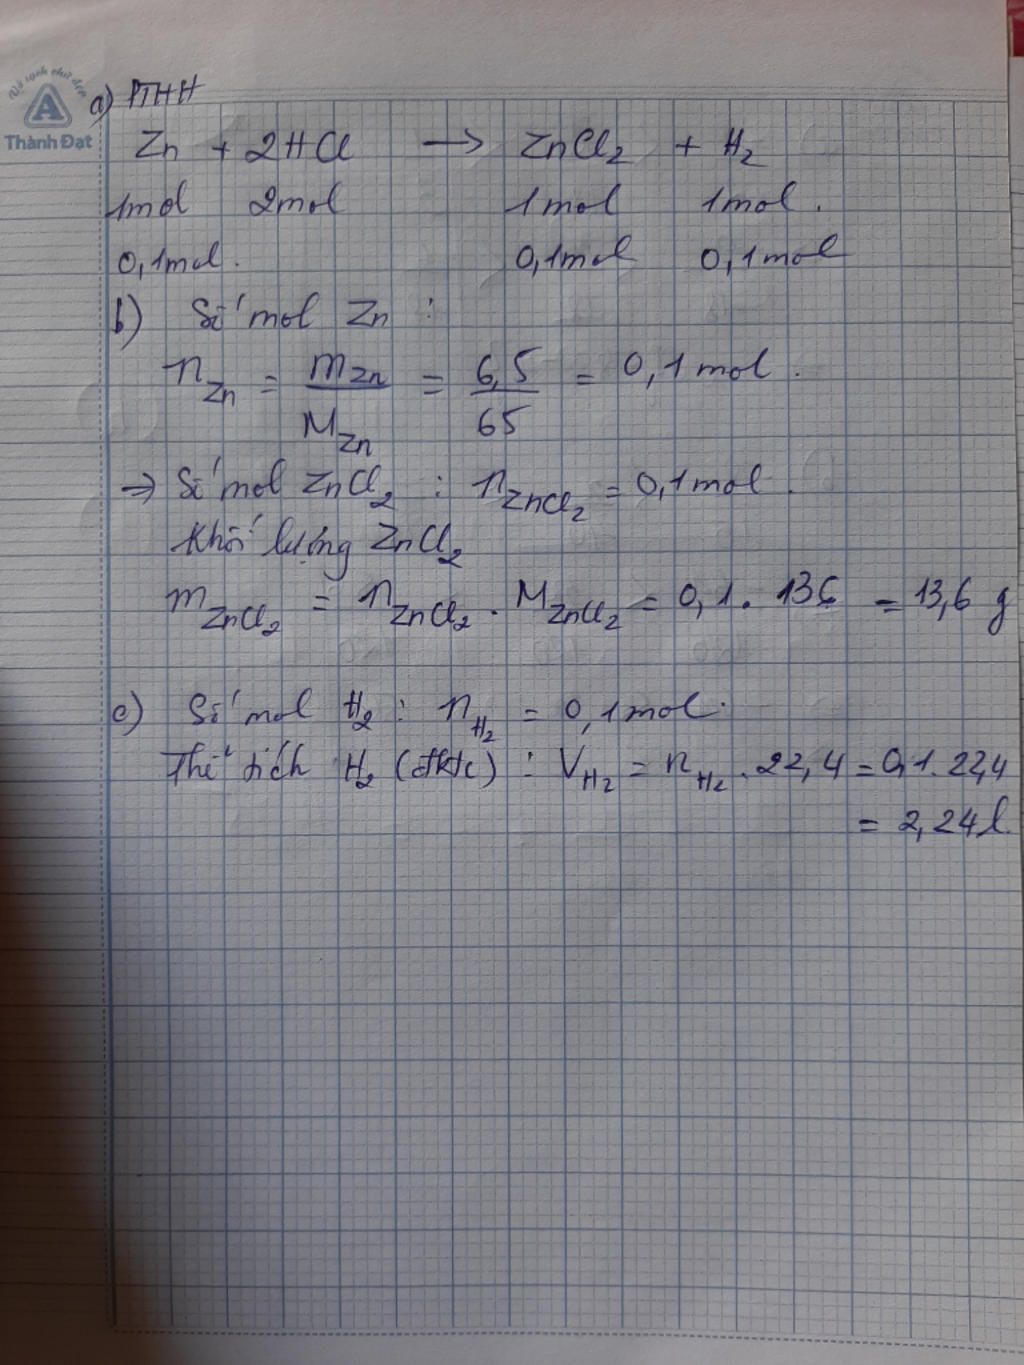 Vở sạch chữ đẹp
A
Thành Đạt
a) PTHH
Zn + 2HCl → ZnCl₂ + H₂
1mol 2mol 1mol 1mol.
0,1mol. 0,1mol 0,1mol
b) Số mol Zn :
n_Zn = m_Zn / M_Zn = 6,5 / 65 = 0,1mol.
⇒ Số mol ZnCl₂ : n_ZnCl₂ = 0,1mol.
Khối lượng ZnCl₂
m_ZnCl₂ = n_ZnCl₂ . M_ZnCl₂ = 0,1. 136 = 13,6 g
c) Số mol H₂ : n_H₂ = 0,1mol.
Thể tích H₂ (đktc) : V_H₂ = n_H₂ . 22,4 = 0,1. 22,4
= 2,24l.